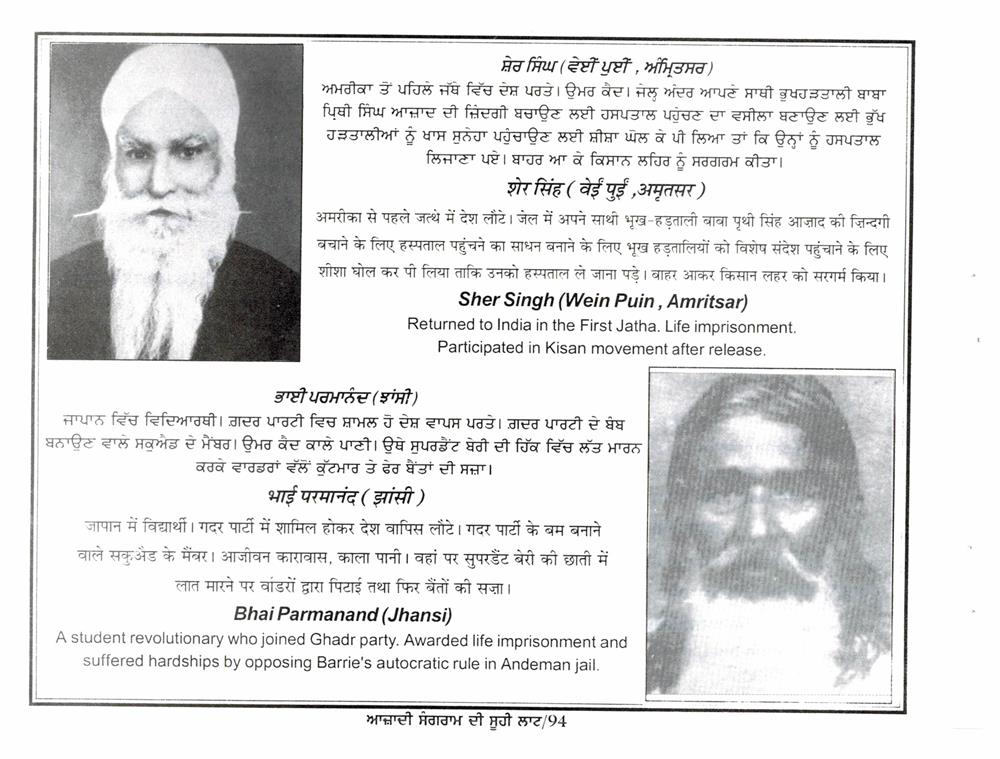 ਸ਼ੇਰ ਸਿੰਘ (ਵੇਈਂ ਪੂਈਂ , ਅੰਮ੍ਰਿਤਸਰ)
ਅਮਰੀਕਾ ਤੋਂ ਪਹਿਲੇ ਜੱਥੇ ਵਿੱਚ ਦੇਸ਼ ਪਰਤੇ। ਉਮਰ ਕੈਦ। ਜੇਲ੍ਹ ਅੰਦਰ ਆਪਣੇ ਸਾਥੀ ਭੁਖਹੜਤਾਲੀ ਬਾਬਾ
ਪ੍ਰਿਥੀ ਸਿੰਘ ਆਜ਼ਾਦ ਦੀ ਜ਼ਿੰਦਗੀ ਬਚਾਉਣ ਲਈ ਹਸਪਤਾਲ ਪਹੁੰਚਣ ਦਾ ਵਸੀਲਾ ਬਣਾਉਣ ਲਈ ਭੁੱਖ
ਹੜਤਾਲੀਆਂ ਨੂੰ ਖਾਸ ਸੁਨੇਹਾ ਪਹੁੰਚਾਉਣ ਲਈ ਸ਼ੀਸ਼ਾ ਘੋਲ ਕੇ ਪੀ ਲਿਆ ਤਾਂ ਕਿ ਉਨ੍ਹਾਂ ਨੂੰ ਹਸਪਤਾਲ
ਲਿਜਾਣਾ ਪਏ। ਬਾਹਰ ਆ ਕੇ ਕਿਸਾਨ ਲਹਿਰ ਨੂੰ ਸਰਗਰਮ ਕੀਤਾ।
शेर सिंह ( वेईं पुईं ,अमृतसर )
अमरीका से पहले जत्थे में देश लौटे। जेल में अपने साथी भूख-हड़ताली बाबा पृथी सिंह आज़ाद की ज़िन्दगी
बचाने के लिए हस्पताल पहुंचने का साधन बनाने के लिए भूख हड़तालियों को विशेष संदेश पहुंचाने के लिए
शीशा घोल कर पी लिया ताकि उनको हस्पताल ले जाना पड़े। बाहर आकर किसान लहर को सरगर्म किया।
Sher Singh (Wein Puin , Amritsar)
Returned to India in the First Jatha. Life imprisonment.
Participated in Kisan movement after release.
ਭਾਈ ਪਰਮਾਨੰਦ (ਝਾਂਸੀ)
ਜਾਪਾਨ ਵਿੱਚ ਵਿਦਿਆਰਥੀ। ਗ਼ਦਰ ਪਾਰਟੀ ਵਿਚ ਸ਼ਾਮਲ ਹੋ ਦੇਸ਼ ਵਾਪਸ ਪਰਤੇ। ਗ਼ਦਰ ਪਾਰਟੀ ਦੇ ਬੰਬ
ਬਨਾਉਣ ਵਾਲੇ ਸਕੁਐਡ ਦੇ ਮੈਂਬਰ। ਉਮਰ ਕੈਦ ਕਾਲੇ ਪਾਣੀ। ਉਥੇ ਸੁਪਰਡੈਂਟ ਬੇਰੀ ਦੀ ਹਿੱਕ ਵਿੱਚ ਲੱਤ ਮਾਰਨ
ਕਰਕੇ ਵਾਰਡਰਾਂ ਵੱਲੋਂ ਕੁੱਟਮਾਰ ਤੇ ਫੇਰ ਬੈਂਤਾਂ ਦੀ ਸਜ਼ਾ।
भाई परमानंद ( झांसी )
जापान में विद्यार्थी। गदर पार्टी में शामिल होकर देश वापिस लौटे। गदर पार्टी के बम बनाने
वाले सकुअैड के मैंबर। आजीवन कारावास, काला पानी। वहां पर सुपरडैंट बेरी की छाती में
लात मारने पर वांडरों द्वारा पिटाई तथा फिर बैंतों की सज़ा।
Bhai Parmanand (Jhansi)
A student revolutionary who joined Ghadr party. Awarded life imprisonment and
suffered hardships by opposing Barrie's autocratic rule in Andeman jail.
ਆਜ਼ਾਦੀ ਸੰਗਰਾਮ ਦੀ ਸੂਹੀ ਲਾਟ/94